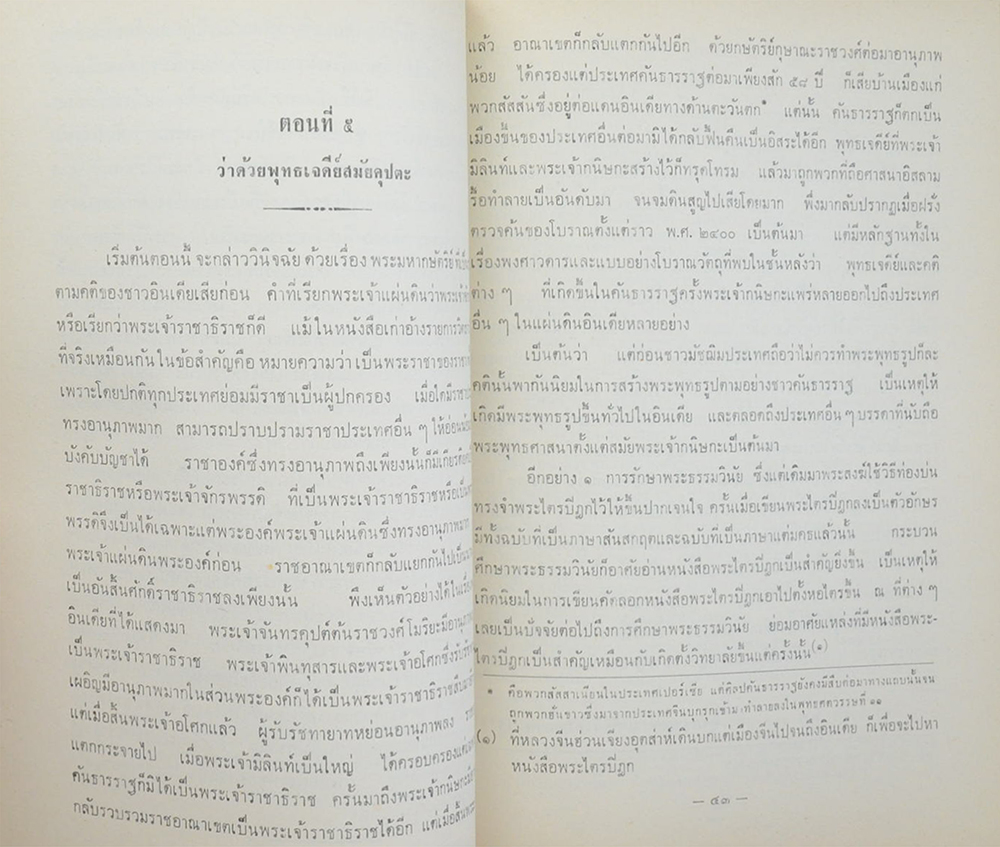 ตอนที่ ๕
ว่าด้วยพุทธเจดีย์สมัยคุปตะ
เริ่มต้นตอนนี้ จะกล่าววินิจฉัย ด้วยเรื่อง พระมหากษัตริย์
ตามคติของชาวอินเดียเสียก่อน คำที่เรียกพระเจ้าแผ่นดินว่า
หรือเรียกว่าพระเจ้าราชาธิราชก็ดี แม้ในหนังสือเก่าอ้างรายการวิ
ที่จริงเหมือนกันในข้อสำคัญคือ หมายความว่า เป็นพระราชาของ
เพราะโดยปกติทุกประเทศย่อมมีราชาเป็นผู้ปกครอง เมื่อใดมี
ทรงอานุภาพมาก สามารถปราบปรามราชาประเทศอื่น ๆ ให้อ่อน
บังคับบัญชาได้ ราชาองค์ซึ่งทรงอานุภาพถึงเพียงนั้นก็มี
ราชาธิราชหรือพระเจ้าจักรพรรดิ ที่เป็นพระเจ้าราชาธิราชหรือ
พรรดิจึงเป็นได้เฉพาะแต่พระองค์พระเจ้าแผ่นดินซึ่งทรงอานุภาพมาก
พระเจ้าแผ่นดินพระองค์ก่อน ราชอาณาเขตก็กลับแยกกันไป
เป็นอันสิ้นศักดิ์ราชาธิราชลงเพียงนั้น พึงเห็นตัวอย่างได้ใน
อินเดียที่ได้แสดงมา พระเจ้าจันทรคุปต์ต้นราชวงศ์โมริยะมี
เป็นพระเจ้าราชาธิราช พระเจ้าพินทุสารและพระเจ้าอโศกซึ่ง
เผอิญมีอานุภาพมากในส่วนพระองค์ก็ได้เป็นพระเจ้าราชาธิราช
แต่เมื่อสิ้นพระเจ้าอโศกแล้ว ผู้รับรัชทายาทหย่อนอานุภาพลง
แตกกระจายไป เมื่อพระเจ้ามิลินท์เป็นใหญ่ ได้ครอบครอง
คันธารราฐก็มิได้เป็นพระเจ้าราชาธิราช ครั้นมาถึงพระเจ้ากนิษกะ
กลับรวบรวมราชอาณาเขตเป็นพระเจ้าราชาธิราชได้อีก แต่เมื่อสิ้น
แล้ว อาณาเขตก็กลับแตกกันไปอีก ด้วยกษัตริย์กุษาณะราชวงศ์ต่อมาอานุภาพ
น้อย ได้ครองแต่ประเทศคันธารราฐต่อมาเพียงสัก ๕๘ ปี ก็เสียบ้านเมืองแก่
พวกสัสสันซึ่งอยู่ต่อแดนอินเดียทางด้านตะวันตก* แต่นั้น คันธารราฐก็ตกเป็น
เมืองขึ้นของประเทศอื่นต่อมามิได้กลับฟื้นคืนเป็นอิสระได้อีก พุทธเจดีย์ที่พระเจ้า
มิลินท์และพระเจ้ากนิษกะสร้างไว้ก็ทรุดโทรม แล้วมาถูกพวกที่ถือศาสนาอิสลาม
รื้อทำลายเป็นอันดับมา จนจมดินสูญไปเสียโดยมาก พึ่งมากลับปรากฏเมื่อฝรั่ง
ตรวจค้นของโบราณตั้งแต่ราว พ.ศ. ๒๔๐๐ เป็นต้นมา แต่มีหลักฐานทั้งใน
เรื่องพงศาวดารและแบบอย่างโบราณวัตถุที่พบในชั้นหลังว่า พุทธเจดีย์และคติ
ต่าง ๆ ที่เกิดขึ้นในคันธารราฐครั้งพระเจ้ากนิษกะแพร่หลายออกไปถึงประเทศ
อื่น ๆ ในแผ่นดินอินเดียหลายอย่าง
เป็นต้นว่า แต่ก่อนชาวมัชฌิมประเทศถือว่าไม่ควรทำพระพุทธรูปก็ละ
คตินั้นพากันนิยมในการสร้างพระพุทธรูปตามอย่างชาวคันธารราฐ เป็นเหตุให้
เกิดมีพระพุทธรูปขึ้นทั่วไปในอินเดีย และตลอดถึงประเทศอื่น ๆ บรรดาที่นับถือ
พระพุทธศาสนาตั้งแต่สมัยพระเจ้ากนิษกะเป็นต้นมา
อีกอย่าง ๑ การรักษาพระธรรมวินัย ซึ่งแต่เดิมมาพระสงฆ์ใช้วิธีท่องบ่น
ทรงจำพระไตรปิฎกไว้ให้ขึ้นปากเจนใจ ครั้นเมื่อเขียนพระไตรปิฎกลงเป็นตัวอักษร
มีทั้งฉบับที่เป็นภาษาสันสกฤตและฉบับที่เป็นภาษาแต่มคธแล้วนั้น กระบวน
ศึกษาพระธรรมวินัยก็อาศัยอ่านหนังสือพระไตรปิฎกเป็นสำคัญยิ่งขึ้น เป็นเหตุให้
เกิดนิยมในการเขียนคัดลอกหนังสือพระไตรปิฎกเอาไปตั้งหอไตรขึ้น ณ ที่ต่าง ๆ
เลยเป็นปัจจัยต่อไปถึงการศึกษาพระธรรมวินัย ย่อมอาศัยแหล่งที่มีหนังสือพระ-
ไตรปิฎกเป็นสำคัญเหมือนกับเกิดตั้งวิทยาลัยขึ้นแต่ครั้งนั้น(๑)
* คือพวกสัสสาเนียนในประเทศเปอร์เซีย แต่ศิลปคันธารราฐยังคงมีสืบต่อมาทางแถบนั้นจน
ถูกพวกฮั่นขาวซึ่งมาจากประเทศจีนบุกรุกเข้ามาทำลายลงในพุทธศตวรรษที่ ๑๑
(๑) ที่หลวงจีนฮ่วนเจียงอุตส่าห์เดินบกแต่เมืองจีนไปจนถึงอินเดีย ก็เพื่อจะไปหา
หนังสือพระไตรปิฎก
— ๔๓ —